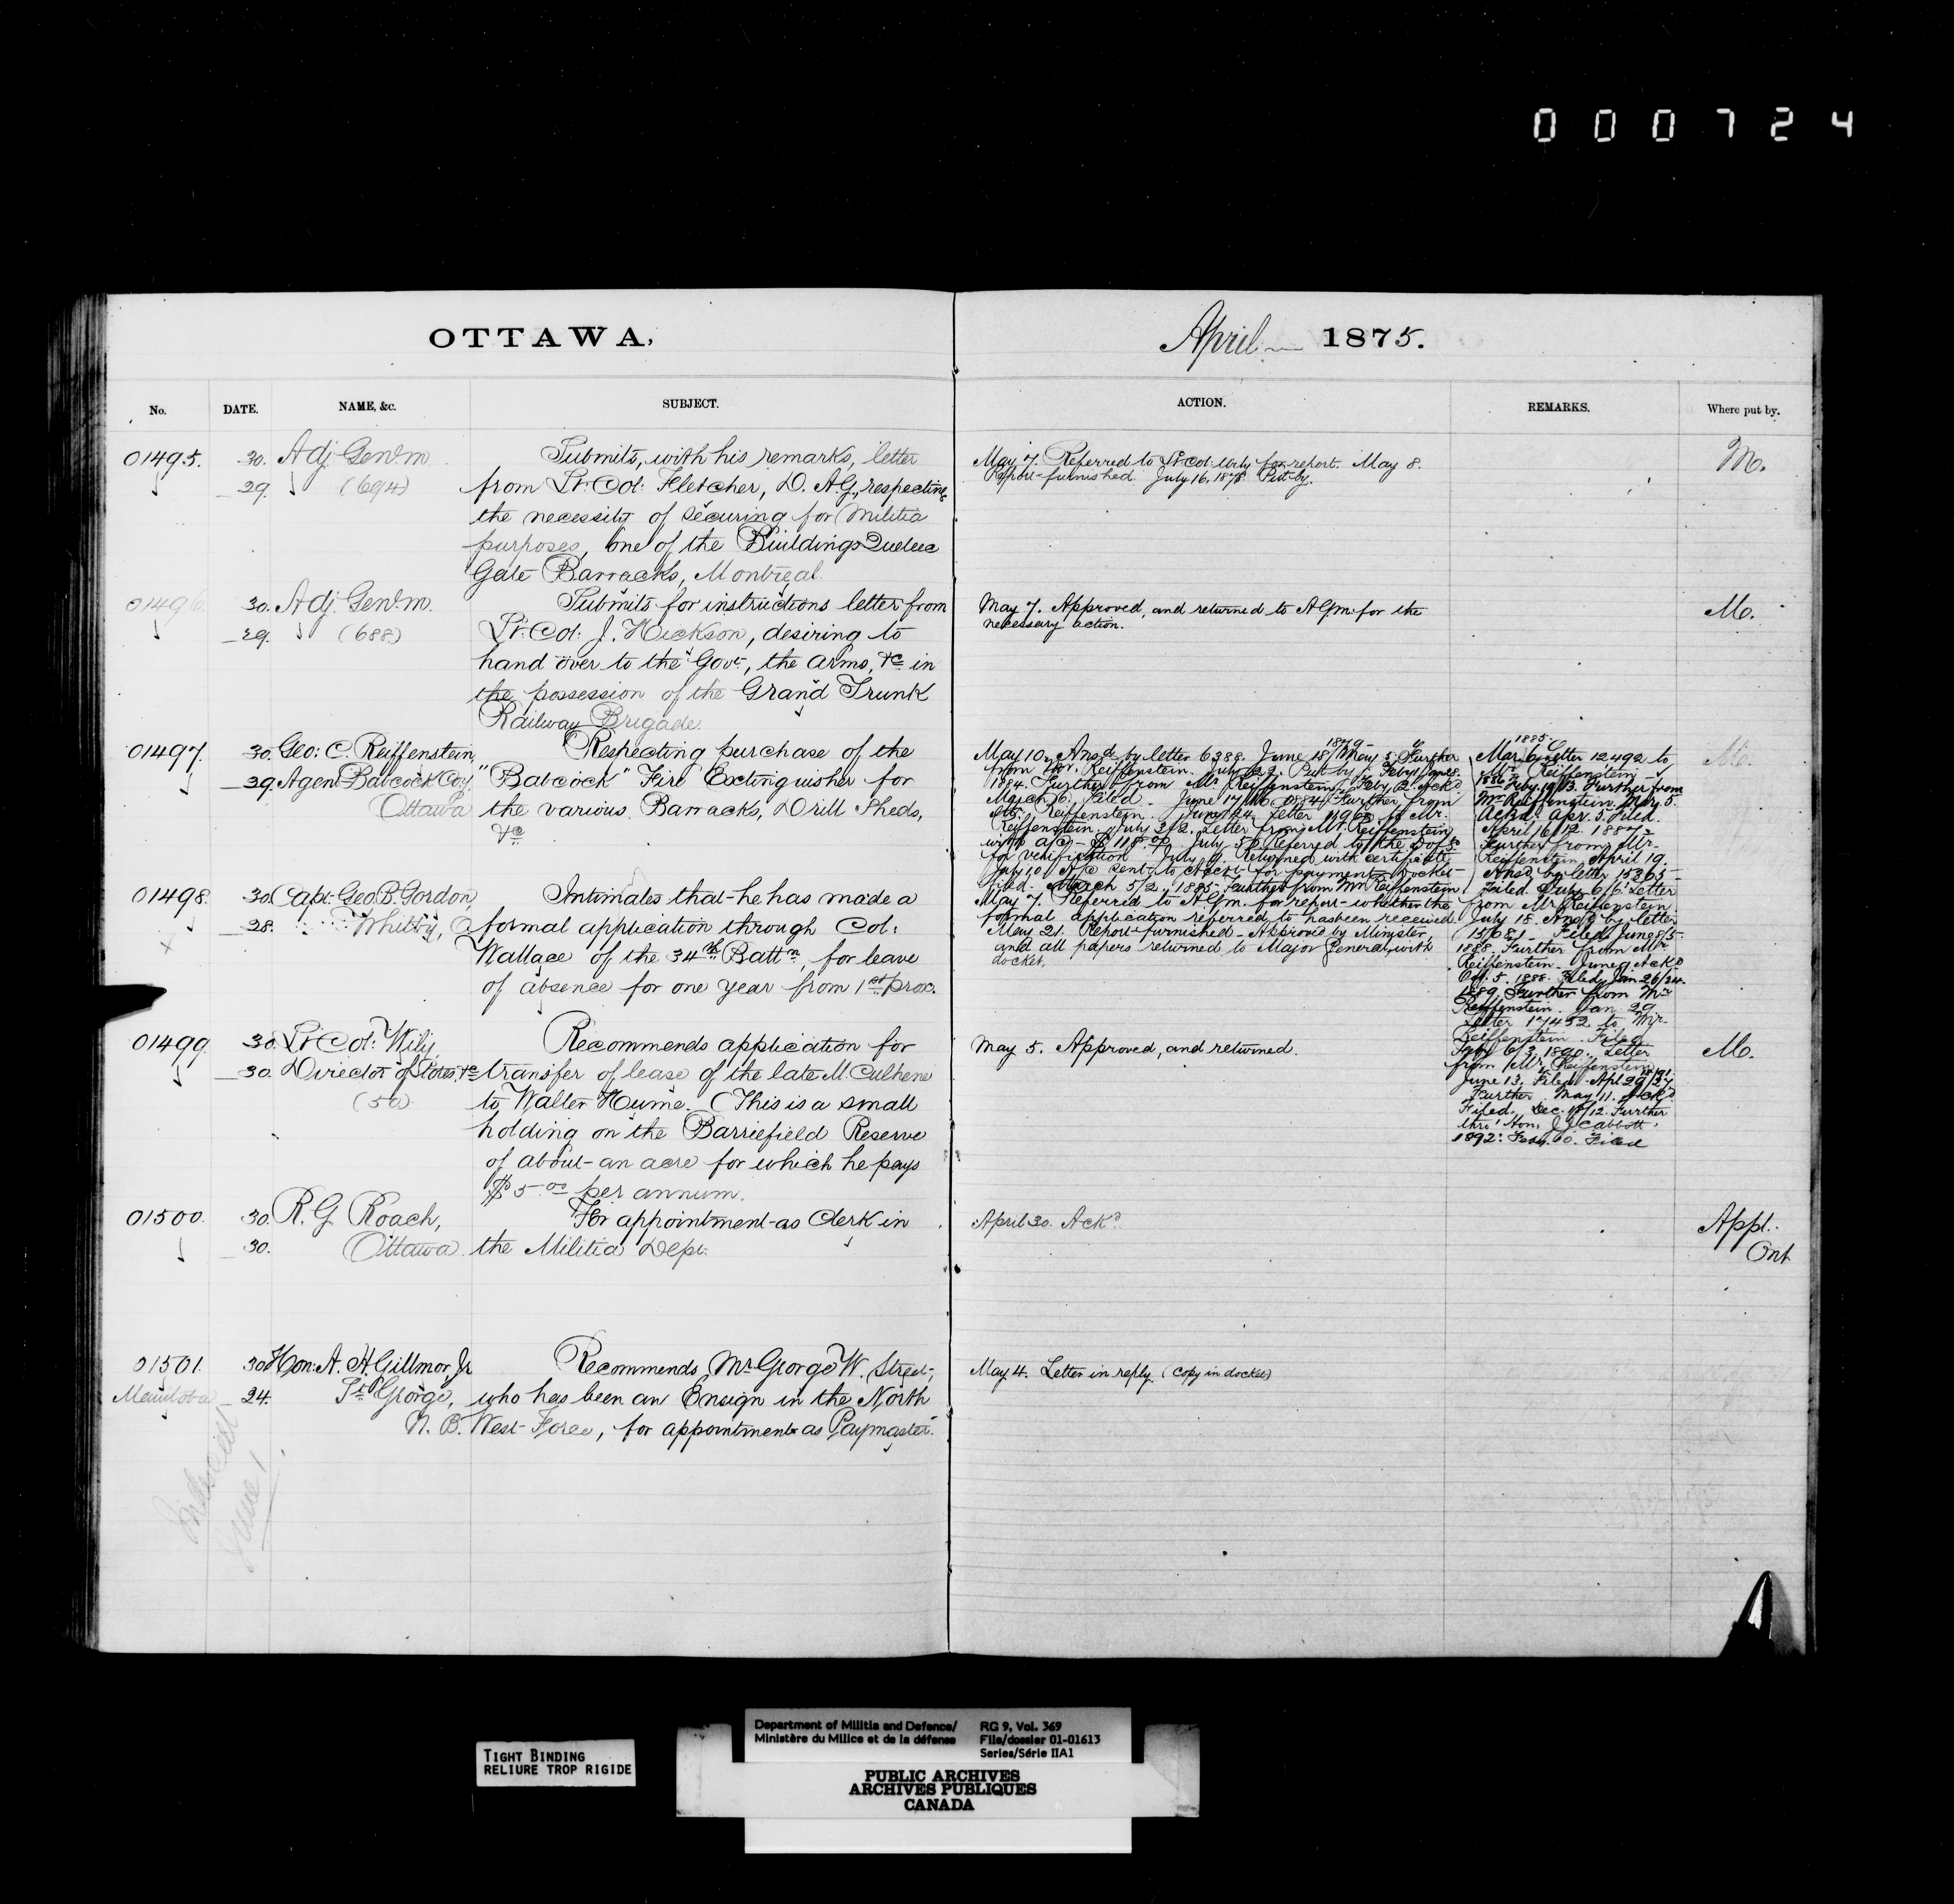 000724
OTTAWA,
April 1875.
No. DATE. NAME, &c. SUBJECT. ACTION. REMARKS. Where put by.
01495. 30. Adj. Genl. m
29. (694)
Submits, with his remarks, letter
from Lt: Col: Fletcher, D. A. G., respecting
the necessity of securing for Militia
purposes, one of the Buildings Quebec
Gate Barracks, Montreal
May 7. Referred to Lt: Col: Wily for report. May 8.
Report furnished. July 16, 1878. Put by.
M.
01496. 30. Adj. Genl. m.
29. (688)
Submits for instructions letter from
Lt: Col: J. Hickson, desiring to
hand over to the Govt, the arms, &c in
the possession of the Grand Trunk
Railway Brigade.
May 7. Approved, and returned to AGm: for the
necessary action.
M.
01497. 30. Geo: C. Reiffenstein,
29. Agent Babcock Coy.
Ottawa
Respecting purchase of the
"Babcock" Fire Extinguisher for
the various Barracks, Drill Sheds,
&c
May 10, Ansd by letter 6388. June 18/ 1879 May 5. Further
from Mr. Reiffenstein. July 22. Put by.
1884. Further from Mr. Reiffenstein. Feby 2. Ackd
March 6. Filed. June 17/16. 1884. Further from
Mr. Reiffenstein. June 24. Letter 11965 to Mr.
Reiffenstein. July 3/2. Letter from Mr. Reiffenstein
with a/c - $118. July 5. Referred to the D of S
for verification July 9. Returned with certificate
July 10 A/c sent to Acct for payment. Docket
filed. March 5/2. 1885. Further from Mr Reiffenstein
1885
Mar. 6. Letter 12492 to
Mr. Reiffenstein
1886 Feby. 19/13. Further from
Mr Reiffenstein. May 5.
Ackd. Apr. 5. Filed.
April 16/12 1887
Further from Mr.
Reiffenstein April 19.
Ansd by letter 15365
Filed. July 6/6 Letter
from Mr Reiffenstein
July 18. Ansd by letter
15681 Filed June 8/5.
1888. Further from Mr
Reiffenstein. June 9 Ackd
Oct. 5. 1888. Filed Jan 26/24.
1889, Further from Mr
Reiffenstein. Jan 29
Letter 17452 to Mr.
Reiffenstein. Filed
Feby 6/3 1890. Letter
from Mr Reiffenstein
June 13. Filed. Apl 29/27 1891
Further. May 11. Ackd
Filed. Dec. 15/12. Further
thro' Hon. J. J. C. Abbott.
1892. Feby 10. Filed
M.
01498. 30. Capt: Geo. B. Gordon,
28. Whitby, O
Intimates that he has made a
formal application through Col:
Wallace of the 34th Battn, for leave
of absence for one year from 1st prox.
May 7. Referred to AGm. for report whether the
formal application referred to has been received.
May 21. Report furnished - Approved by Minister,
and all papers returned to Major General, with
docket.
01499. 30. Lt: Col: Wily
30. Director of Stores, &c
(50)
Recommends application for
transfer of lease of the late M. Culhene
to Walter Hume. (This is a small
holding on the Barriefield Reserve
of about an acre for which he pays
$5.00 per annum.
May 5. Approved, and returned.
M.
01500. 30. R. G. Roach,
30. Ottawa.
For appointment as Clerk in
the Militia Dept:
April 30. Ackd.
Appl.
Ont
01501. 30 Hon: A. H. Gillmor, Jr
Manitoba 24. St George,
N. B.
Recommends, Mr George W. Street,
who has been an Ensign in the North
West Force, for appointment as Paymaster.
May 4. Letter in reply. (Copy in docket)
June 1.
TIGHT BINDING
RELIURE TROP RIGIDE
Department of Militia and Defence/
Ministère du Milice et de la défense
RG 9, Vol. 369
File/dossier 01-01613
Series/Série IIA1
PUBLIC ARCHIVES
ARCHIVES PUBLIQUES
CANADA